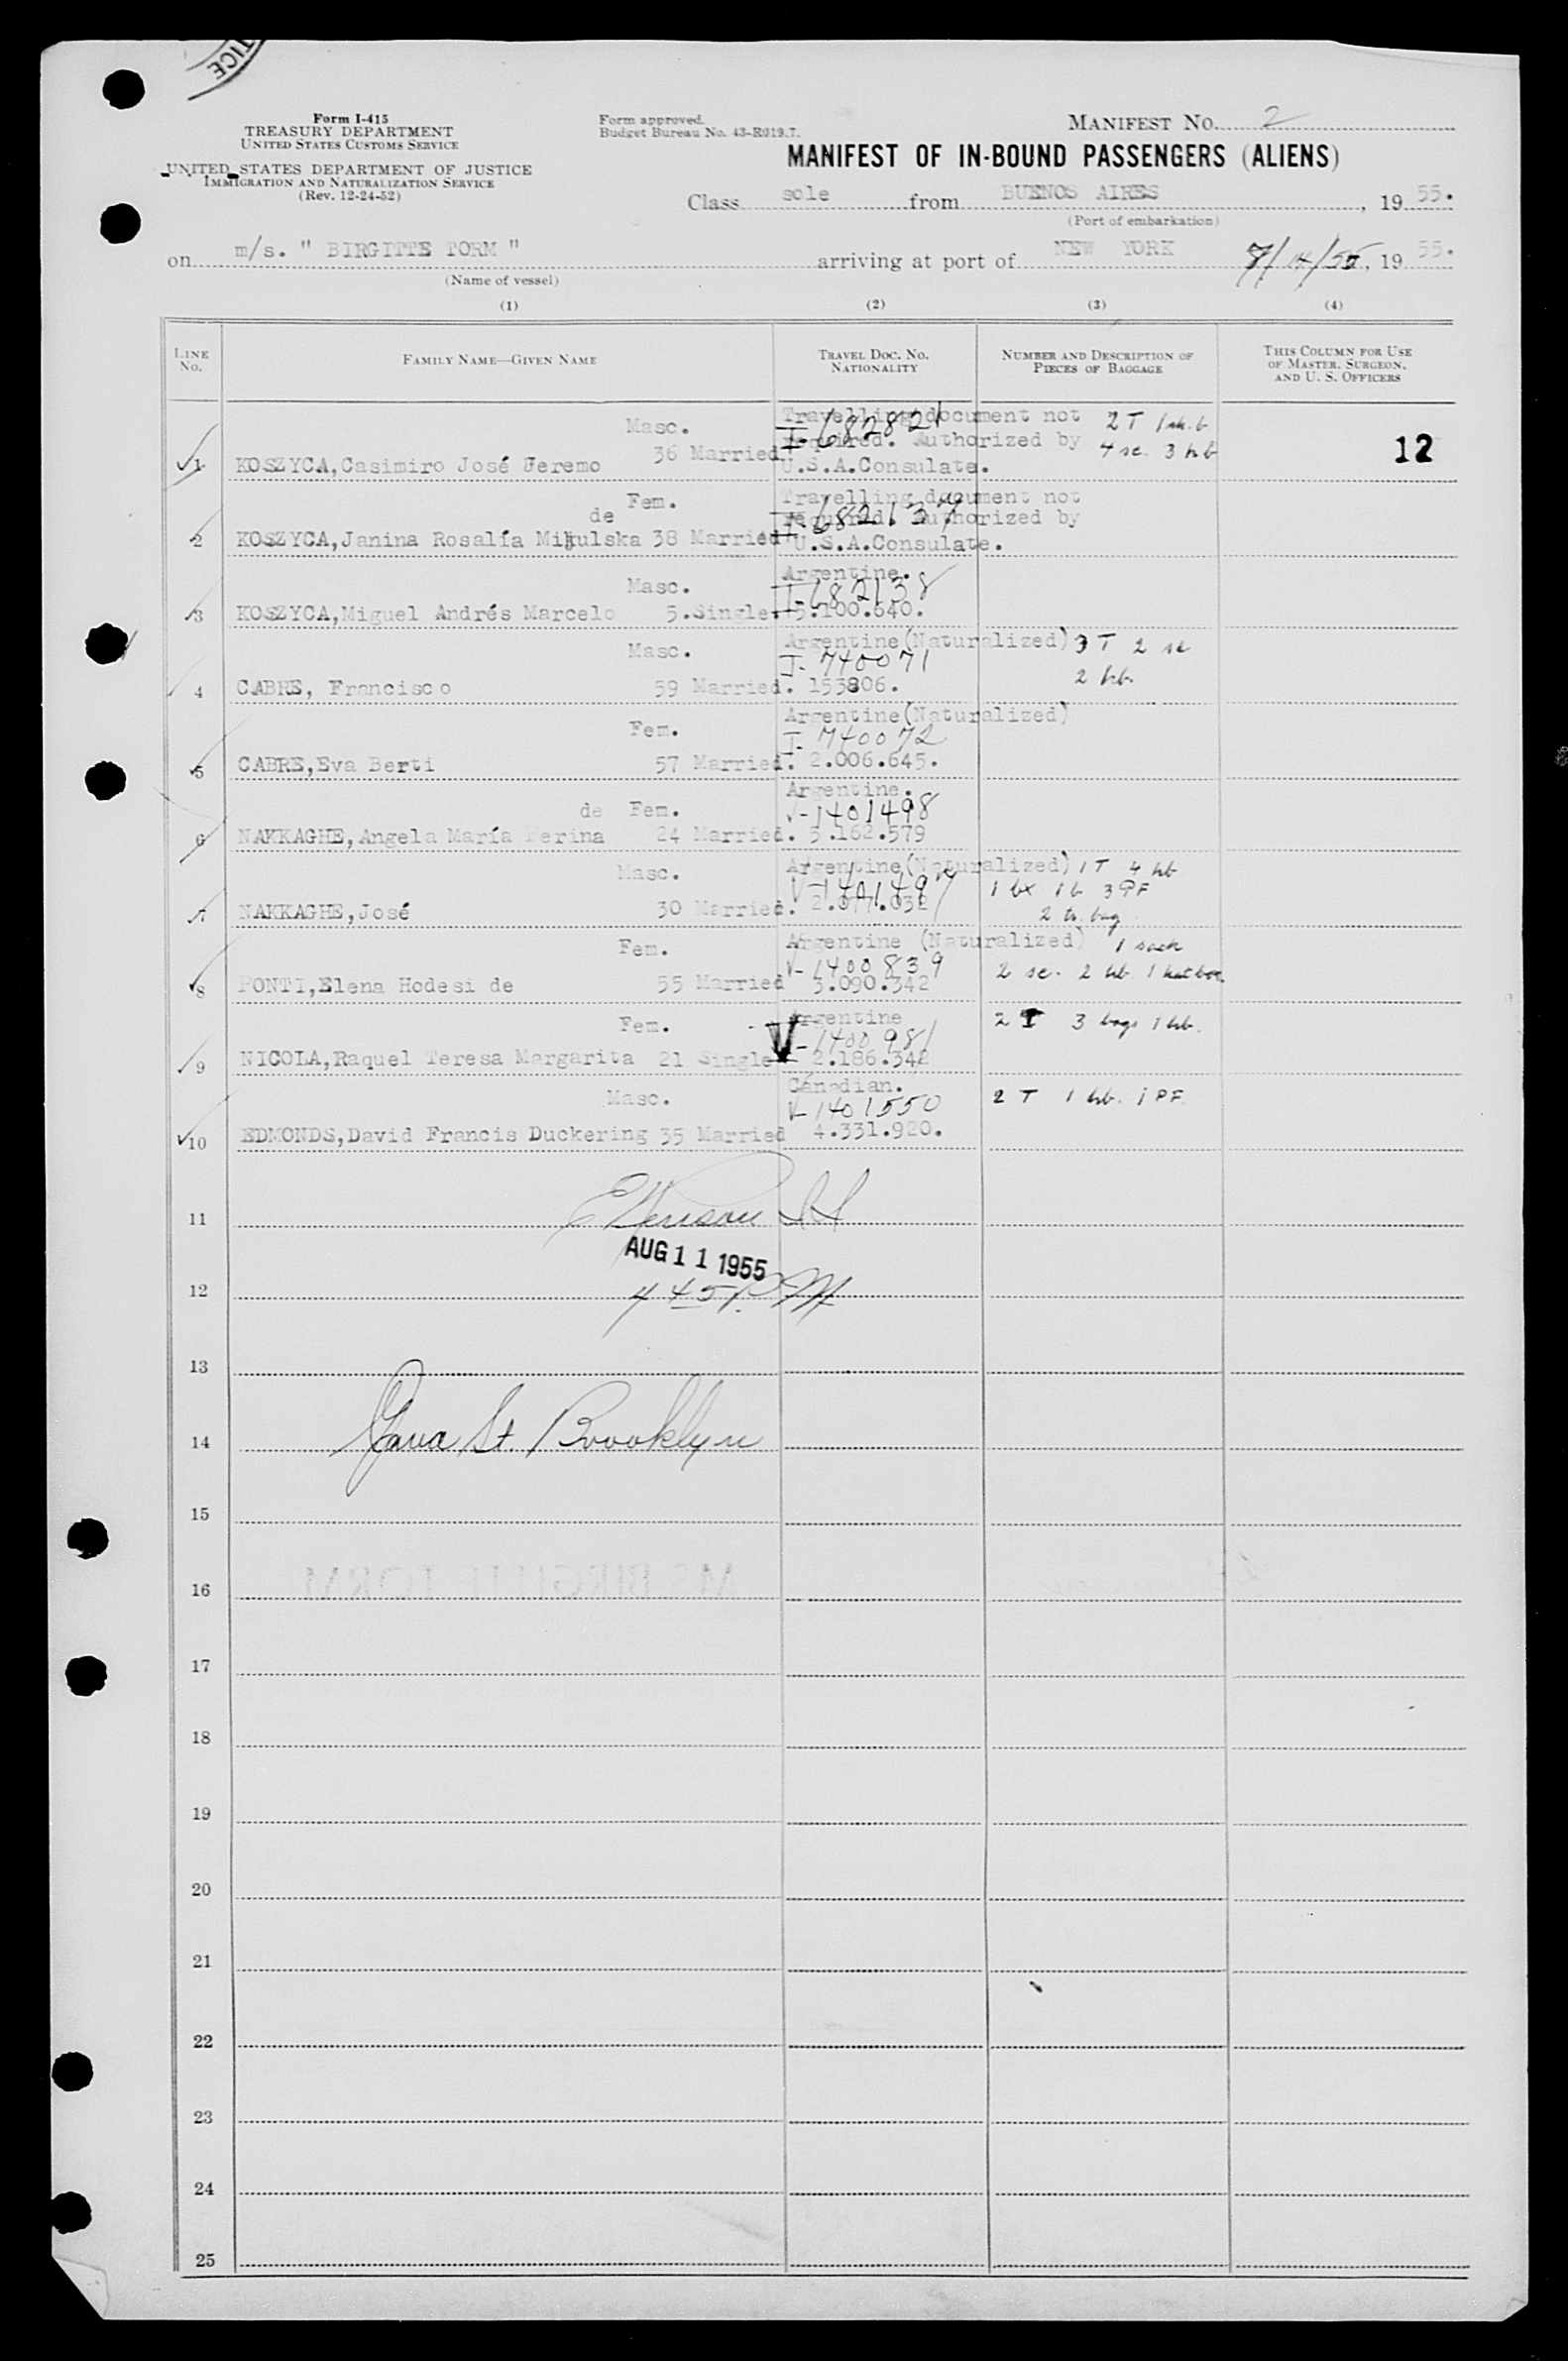 TICE
Form I-415
TREASURY DEPARTMENT
UNITED STATES CUSTOMS SERVICE
UNITED STATES DEPARTMENT OF JUSTICE
IMMIGRATION AND NATURALIZATION SERVICE
(Rev. 12-24-52)
Form approved.
Budget Bureau No. 43-R019.7.
MANIFEST NO. 2
MANIFEST OF IN-BOUND PASSENGERS (ALIENS)
Class sole from BUENOS AIRES, 19 55.
(Port of embarkation)
on m/s. " BIRGITTE TORM " arriving at port of NEW YORK 55, 19 55.
(Name of vessel)
(1) (2) (3) (4)
LINE No.
FAMILY NAME—GIVEN NAME
TRAVEL DOC. NO. NATIONALITY
NUMBER AND DESCRIPTION OF PIECES OF BAGGAGE
THIS COLUMN FOR USE OF MASTER, SURGEON, AND U. S. OFFICERS
Masc. Travelling document not 2 T
I-682821 required. Authorized by 4 sc. 3 hb 12
1 KOSZYCA,Casimiro José Jeremo 36 Married. U.S.A.Consulate.
de Fem. Travelling document not
I-682137 required. Authorized by
2 KOSZYCA,Janina Rosalía Mikulska 38 Married U.S.A.Consulate.
Masc. Argentine.
I-682138
3 KOSZYCA,Miguel Andrés Marcelo 5.Single. 5.100.640.
Masc. Argentine(Naturalized) 3 T 2 sc
I-740071 2 hb.
4 CABRE, Francisco 59 Married. 153806.
Fem. Argentine(Naturalized)
I-740072
5 CABRE,Eva Berti 57 Married. 2.006.645.
de Fem. Argentine.
V-1401498
6 NAKKAGHE,Angela María Perina 24 Married. 3.162.579
Masc. Argentine(Naturalized) 1 T 4 hb
V-1401497 1 bx 1 b 3 PF
7 NAKKAGHE,José 30 Married. 2 bag
Fem. Argentine (Naturalized) 1 sack
V-1400839 2 sc. 2 hb 1 hat box
8 PONTI,Elena Hodesi de 55 Married 3.090.342
Fem. Argentine 2 T 3 bags 1 hb.
V-1400981
9 NICOLA,Raquel Teresa Margarita 21 Single 2.186.342
Masc. Canadian. 2 T 1 hb. 1 PF
V-1401550
10 EDMONDS,David Francis Duckering 35 Married 4.331.920.
11
AUG 11 1955
12 4 45 P.M
13
14 Java St. Brooklyn
15
16 MS BIRGITTE TORM
17
18
19
20
21
22
23
24
25